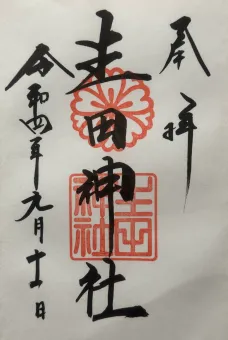 奉拝
生田神社
令和四年元月十一日
生田神社